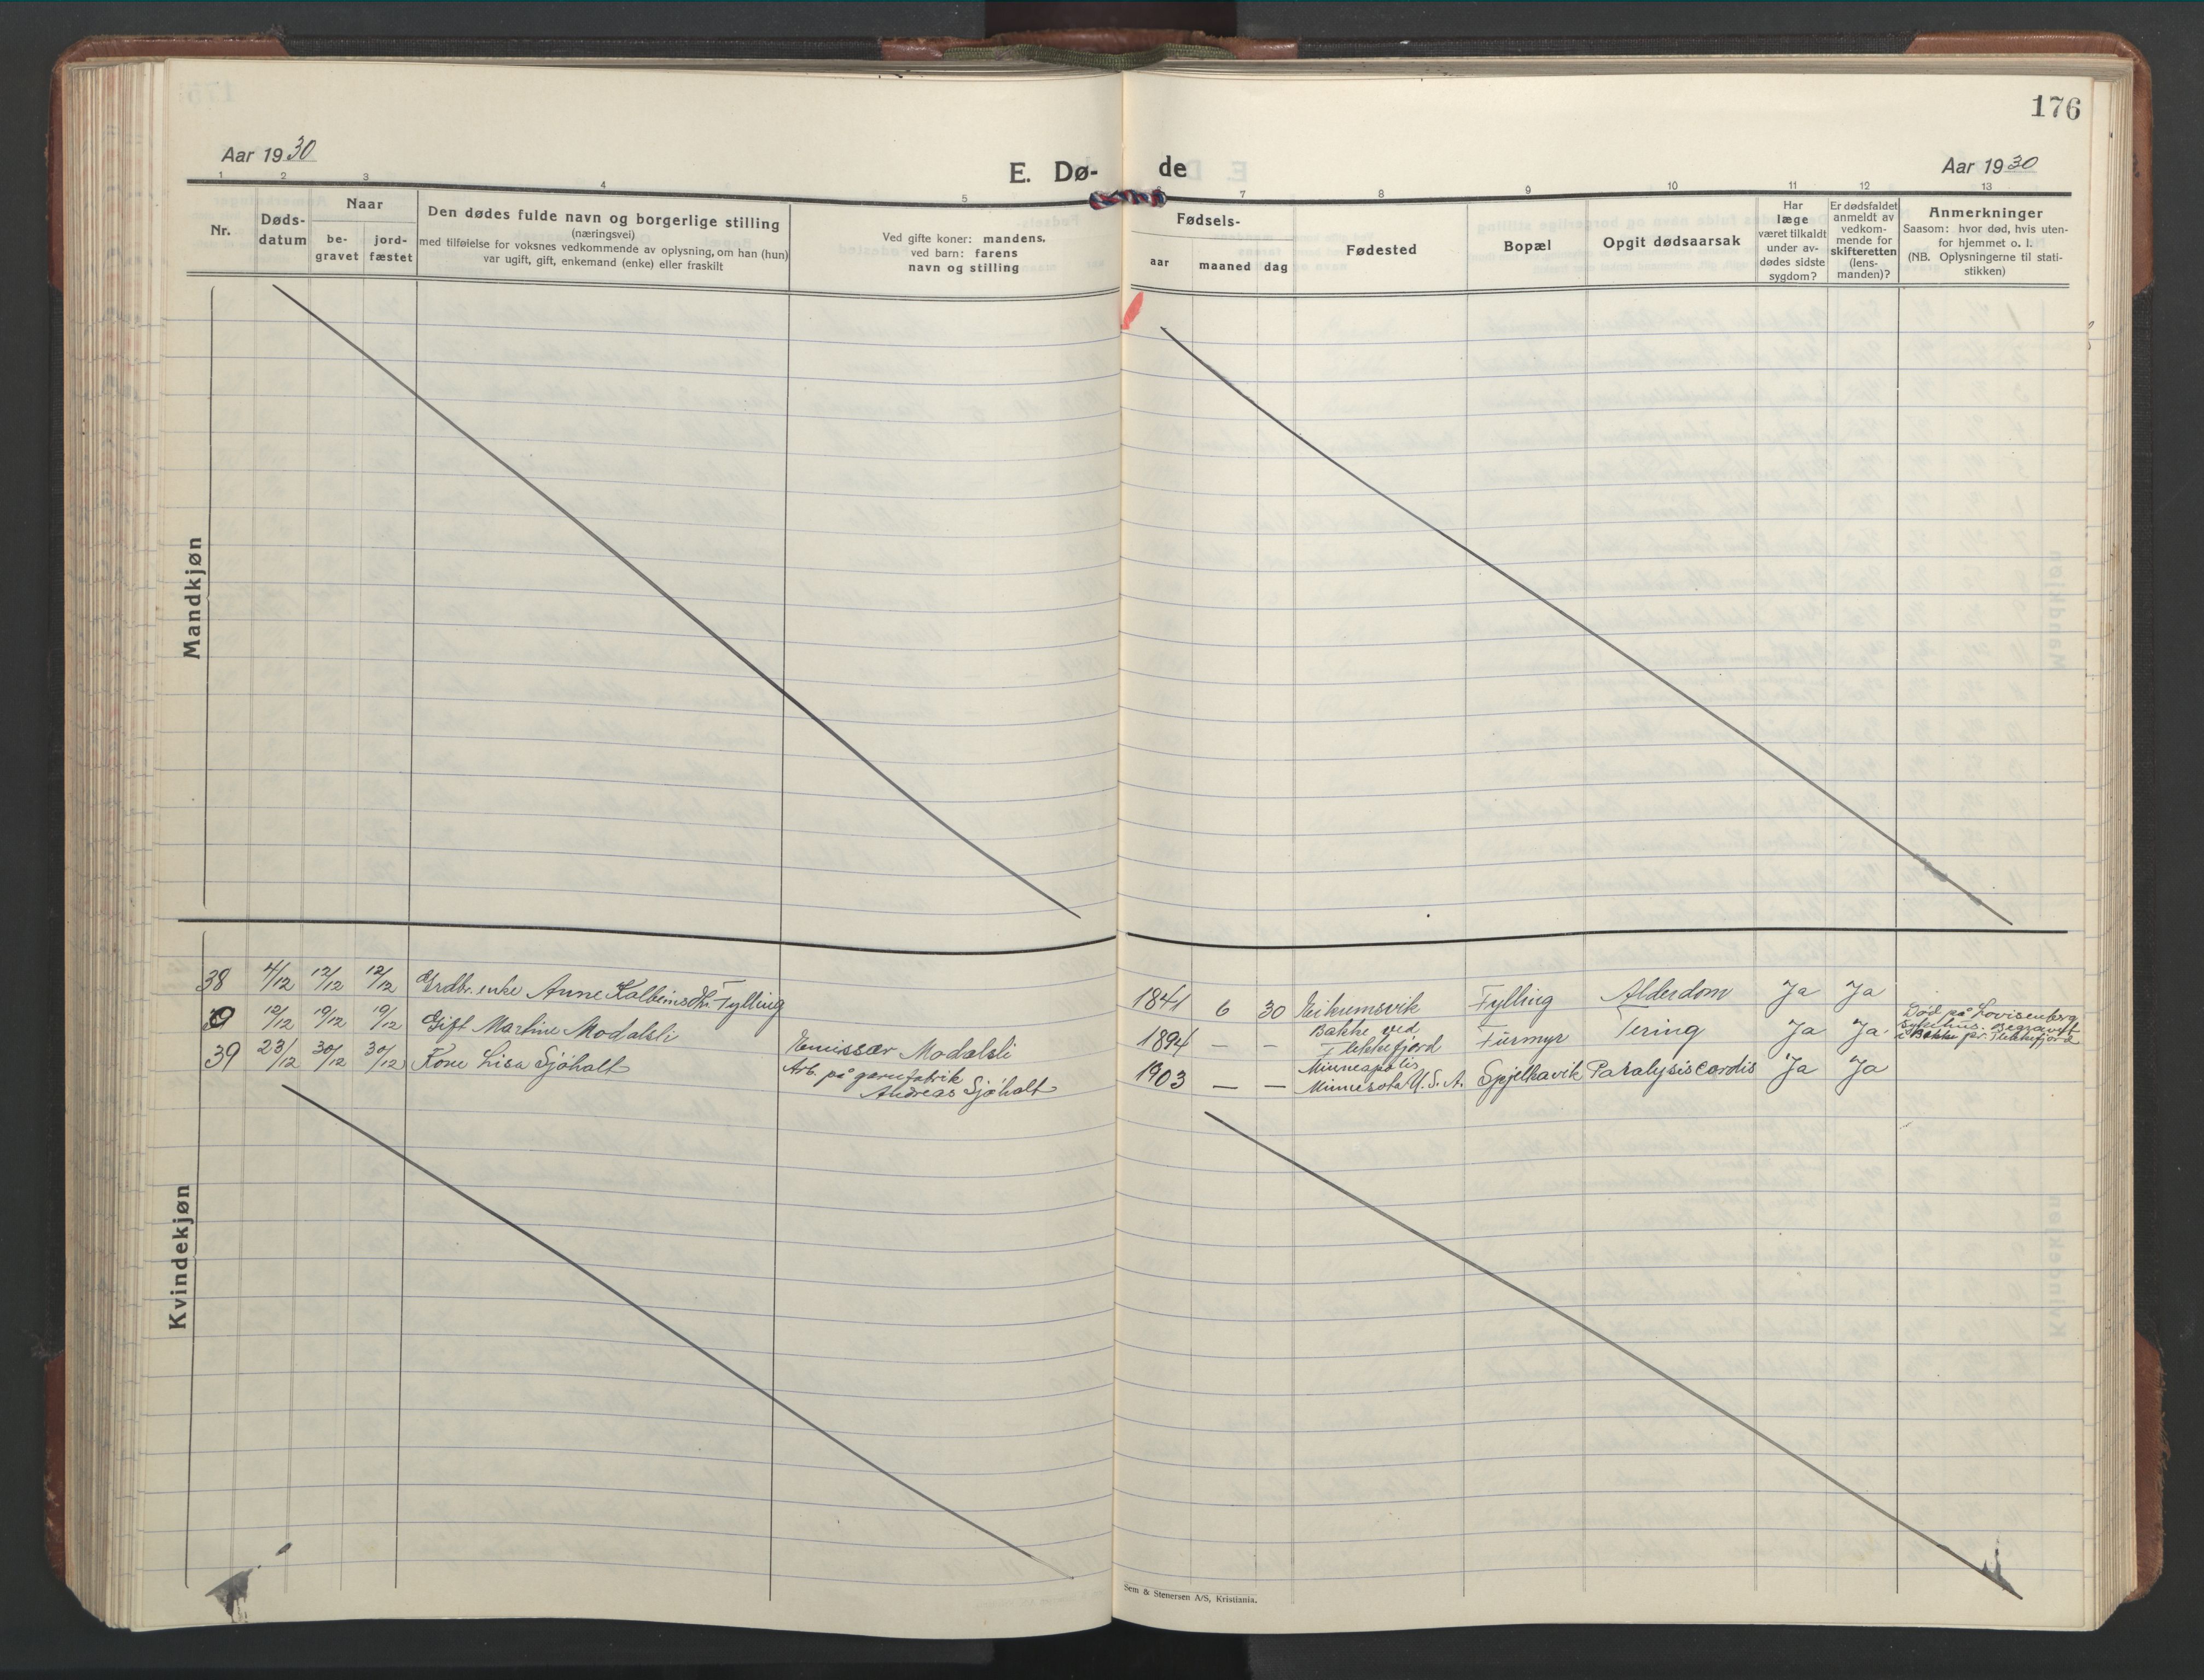 176
Aar 1930
E. Dø-
de
Aar 1930
1 2 3 4 5 6 7 8 9 10 11 12 13
Nr.
Døds-
datum
Naar
be-
gravet
jord-
fæstet
Den dødes fulde navn og borgerlige stilling
(næringsvei)
med tilføielse for voksnes vedkommende av oplysning, om han (hun)
var ugift, gift, enkemand (enke) eller fraskilt
Ved gifte koner: mandens,
ved barn: farens
navn og stilling
Fødsels-
aar
maaned
dag
Fødested
Bopæl
Opgit dødsaarsak
Har
læge
været tilkaldt
under av-
dødes sidste
sygdom?
Er dødsfaldet
anmeldt av
vedkom-
mende for
skifteretten
(lens-
manden)?
Anmerkninger
Saasom: hvor død, hvis uten-
for hjemmet o. l.
(NB. Oplysningerne til stati-
stikken)
Mandkjøn
Kvindekjøn
38 4/12 12/12 12/12 Grdbr. enke Anne Kolbeinsdtr. Fylling 1841 6 30 Eikremsvik Fylling Alderdom Ja Ja
0 12/12 19/12 19/12 Gift Martine Modalsli Emissær Modalsli 1894 — — Bakke ved
Flekkefjord Furmyr Tering Ja Ja Død på Lovisenberg
sykehus. Begravet
i Bakke pr. Flekkefjord
39 23/12 30/12 30/12 Kone Lisa Sjøholt Arb. på garnfabrik
Andreas Sjøholt 1903 — — Minneapolis
Minnesota U.S.A. Spjelkavik Paralysis cordis Ja Ja
Sem & Stenersen A/S, Kristiania.